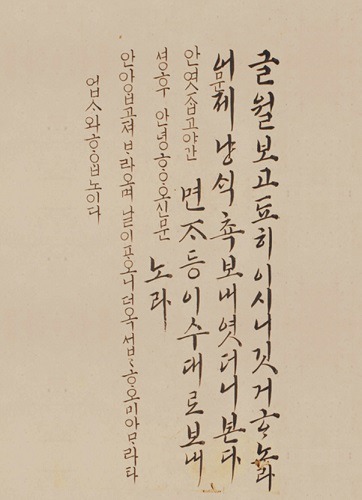 글월보고됴히이시니깃거ᄒᆞ노라
어제냥ᄉᆡᆨ쵹보내엿더니본다
안엿ᄌᆞᆸ고야간 면ᄌᆞ등이수대로보내
셩후안녕ᄒᆞ오신문 노라
안아ᄋᆞᆸ고져ᄇᆞ라오며날이포오니더옥섭섭ᄒᆞ오미아ᄆᆞ라타
업ᄉᆞ와ᄒᆞᄋᆞᆸ노이다